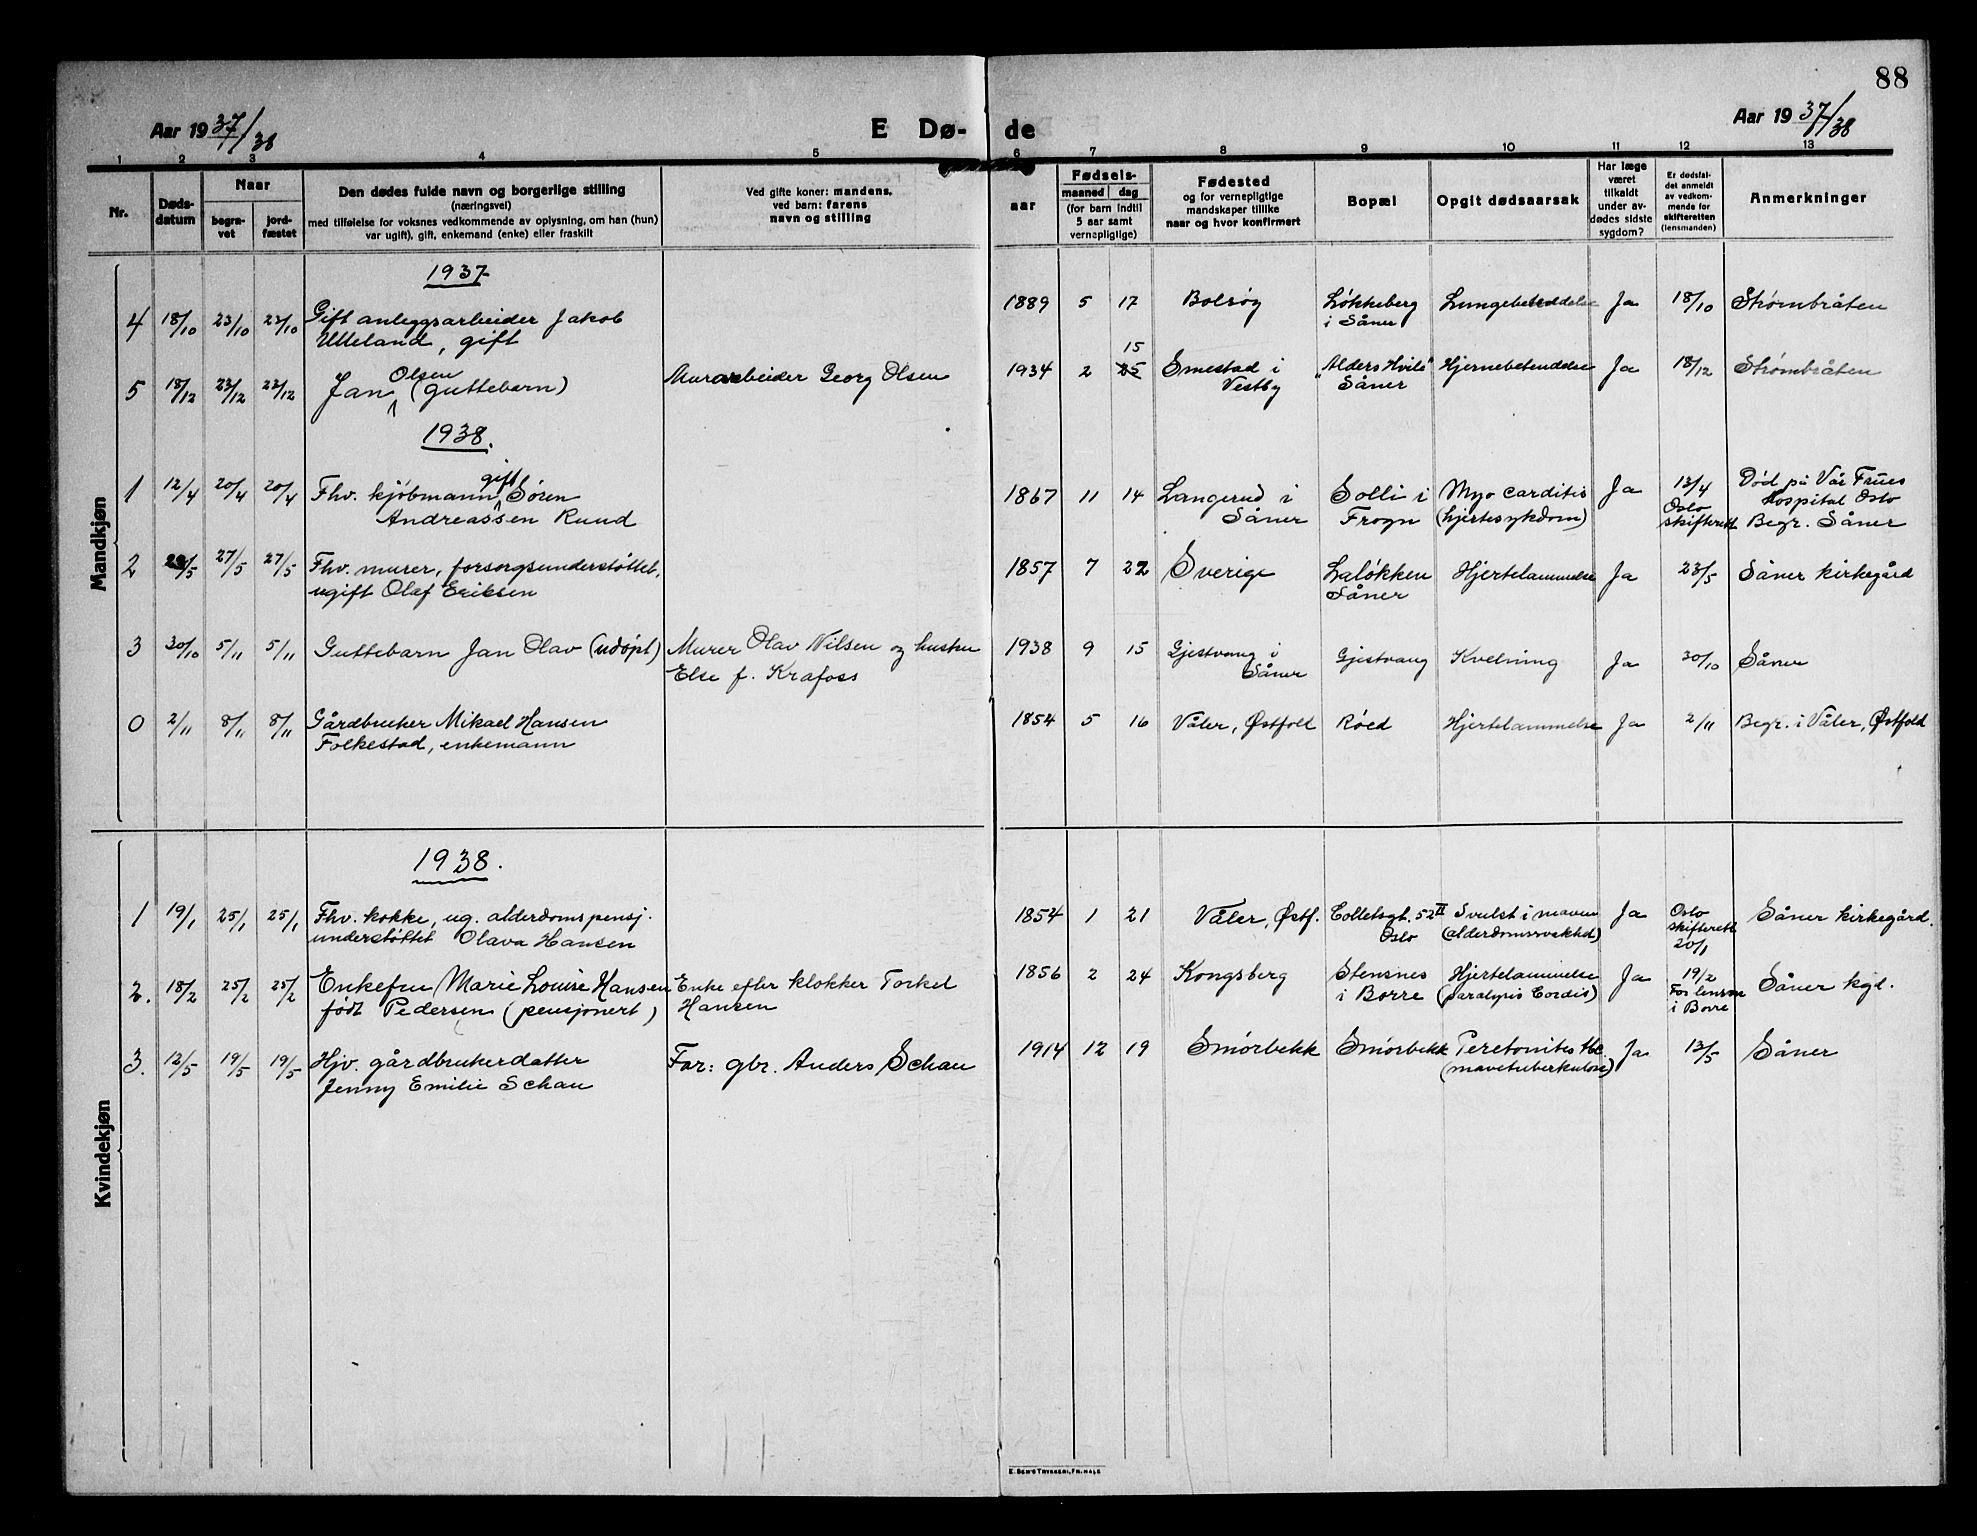 88
Aar 1937/38
E Dø- de
Aar 1937/38
1 2 3 4 5 6 7 8 9 10 11 12 13
Nr.
Døds-
datum
Naar
begra-
vet
jord-
fæstet
Den dødes fulde navn og borgerlige stilling
(næringsvei)
med tilføielse for voksnes vedkommende av oplysning, om han (hun)
var ugift), gift, enkemand (enke) eller fraskilt
Ved gifte koner: mandens,
ved barn: farens
navn og stilling
aar
Fødsels-
maaned dag
(for barn indtil
5 aar samt
vernepligtige)
Fødested
og for vernepligtige
mandskaper tillike
naar og hvor konfirmert
Bopæl
Opgit dødsaarsak
Har læge
været
tilkaldt
under av-
dødes sidste
sygdom?
Er dødsfal-
det anmeldt
av vedkom-
mende for
skifteretten
(lensmanden)
Anmerkninger
Mandkjøn
1937
4 18/10 23/10 23/10 Gift anleggsarbeider Jakob
Ulleland, gift
1889 5 17 Bolsøy Løkkeberg
i Såner
Lungebetendelse Ja 18/10 Strømbråten
5 18/12 23/12 23/12 Jan Olsen (guttebarn)
Murarbeider Georg Olsen
1934 2 25 15 Smestad i
Vestby
"Alders Hvile"
Såner
Hjernebetendelse Ja 18/12 Strømbråten
1938.
1 12/4 20/4 20/4 Fhv. kjøbmann gift Søren
Andreassen Ruud
1867 11 14 Langerud i
Såner
Solli i
Frogn
Myo carditis
(hjertesykdom)
Ja 13/4
Oslo
skifterett
Død på Vår Frues
Hospital Oslo
Begr. Såner
2 23/5 27/5 27/5 Fhv. murer, forsorgsunderstøttet,
ugift Olaf Eriksen
1857 7 22 Sverige Laløkken
Såner
Hjertelammelse Ja 23/5 Såner kirkegård
3 30/10 5/11 5/11 Guttebarn Jan Olav (udøpt)
Murer Olav Nilsen og hustru
Else f. Krafoss
1938 9 15 Gjestvang i
Såner
Gjestvang Kvelning Ja 30/10 Såner
0 2/11 8/11 8/11 Gårdbruker Mikael Hansen
Folkestad, enkemann
1854 5 16 Våler, Østfold Røed Hjertelammelse Ja 2/11 Begr. i Våler, Østfold
Kvindekjøn
1938.
1 19/1 25/1 25/1 Fhv. kokke, ug. alderdomspensj.
understøttet Olava Hansen
1854 1 21 Våler, Østf. Colletsgt. 52 II
Oslo
Svulst i maven
(alderdomssvakhet)
Ja Oslo
skifterett
20/1
Såner kirkegård.
2. 18/2 25/2 25/2 Enkefru Marie Louise Hansen
født Pedersen (pensjonert)
Enke efter klokker Torkel
Hansen
1856 2 24 Kongsberg Stensnes
i Borre
Hjertelammelse
(paralysis Cordis)
Ja 19/2
For lensm
i Borre
Såner kgd.
3. 12/5 19/5 19/5 Hjv. gårdbrukerdatter
Jenny Emilie Schau
Far: gbr. Anders Schau
1914 12 19 Smørbekk Smørbekk Peretonites tbc.
(mavetuberkulose)
Ja 13/5 Såner
E. SEM'S TRYKKERI, FR.HALD